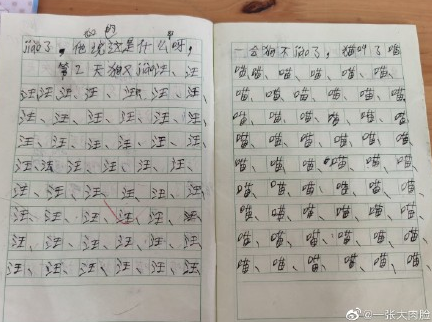 了。他说这是什么呀,
第2天狗又汪、汪、
汪汪、汪、汪、汪、汪、汪、
汪、汪、汪、汪、汪、汪、
汪、汪、汪、汪、汪、汪、
汪、汪、汪、汪、汪、汪、
汪、汪、汪、汪、汪、汪、
汪、汪、汪、汪、汪、汪、
汪、汪、汪、汪、汪、汪、
汪、汪、汪、汪、汪、汪、
一会狗不了,猫叫了喵
喵喵、喵、喵、喵、喵、
喵、喵、喵、喵、喵、喵、
喵、喵、喵、喵、喵、喵、
喵、喵、喵、喵、喵、喵、
喵、喵、喵、喵、喵、喵、
喵、喵、喵、喵、喵、喵、
喵、喵、喵、喵、喵、喵、
喵、喵、喵、喵、喵、喵、
喵、喵、喵、喵、喵、喵、
@一张大肉脸